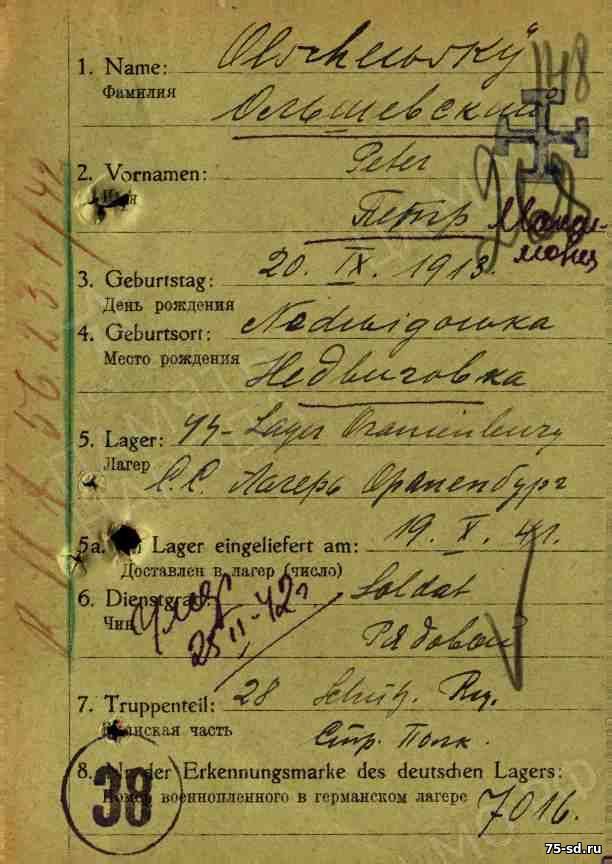 1. Name: Olschewsky
Фамилия
Ольшевский
2. Vornamen: Peter
Имя
Петр
3. Geburtstag: 20. IX. 1913.
День рождения
4. Geburtsort: Nedwigowka
Место рождения
Недвиговка
5. Lager: Lager Oranienburg
Лагерь
С.С. Лагерь Ораненбург
5a. Lager eingeliefert am: 19. X. 41.
Доставлен в лагерь (число)
6. Dienstgrad: Soldat
Чин
Рядовой
умер
25 II-42г
7. Truppenteil: 28 Schütz. Reg.
Воинская часть
Стр. Полк.
8. der Erkennungsmarke des deutschen Lagers:
Номер военнопленного в германском лагере
7016.
38
75-sd.ru